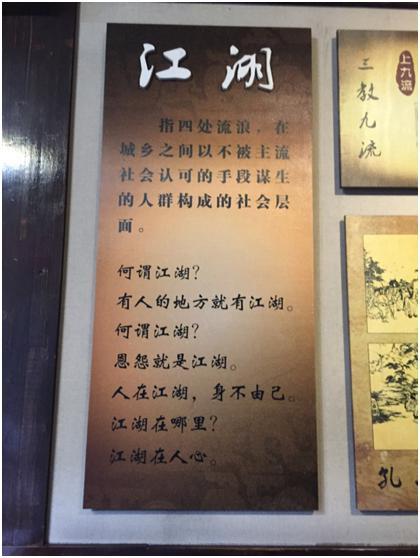 江湖
指四处流浪，在
城乡之间以不被主流
社会认可的手段谋生
的人群构成的社会层
面。
何谓江湖？
有人的地方就有江湖。
何谓江湖？
恩怨就是江湖。
人在江湖，身不由己。
江湖在哪里？
江湖在人心。
上九流
三教九流
孔